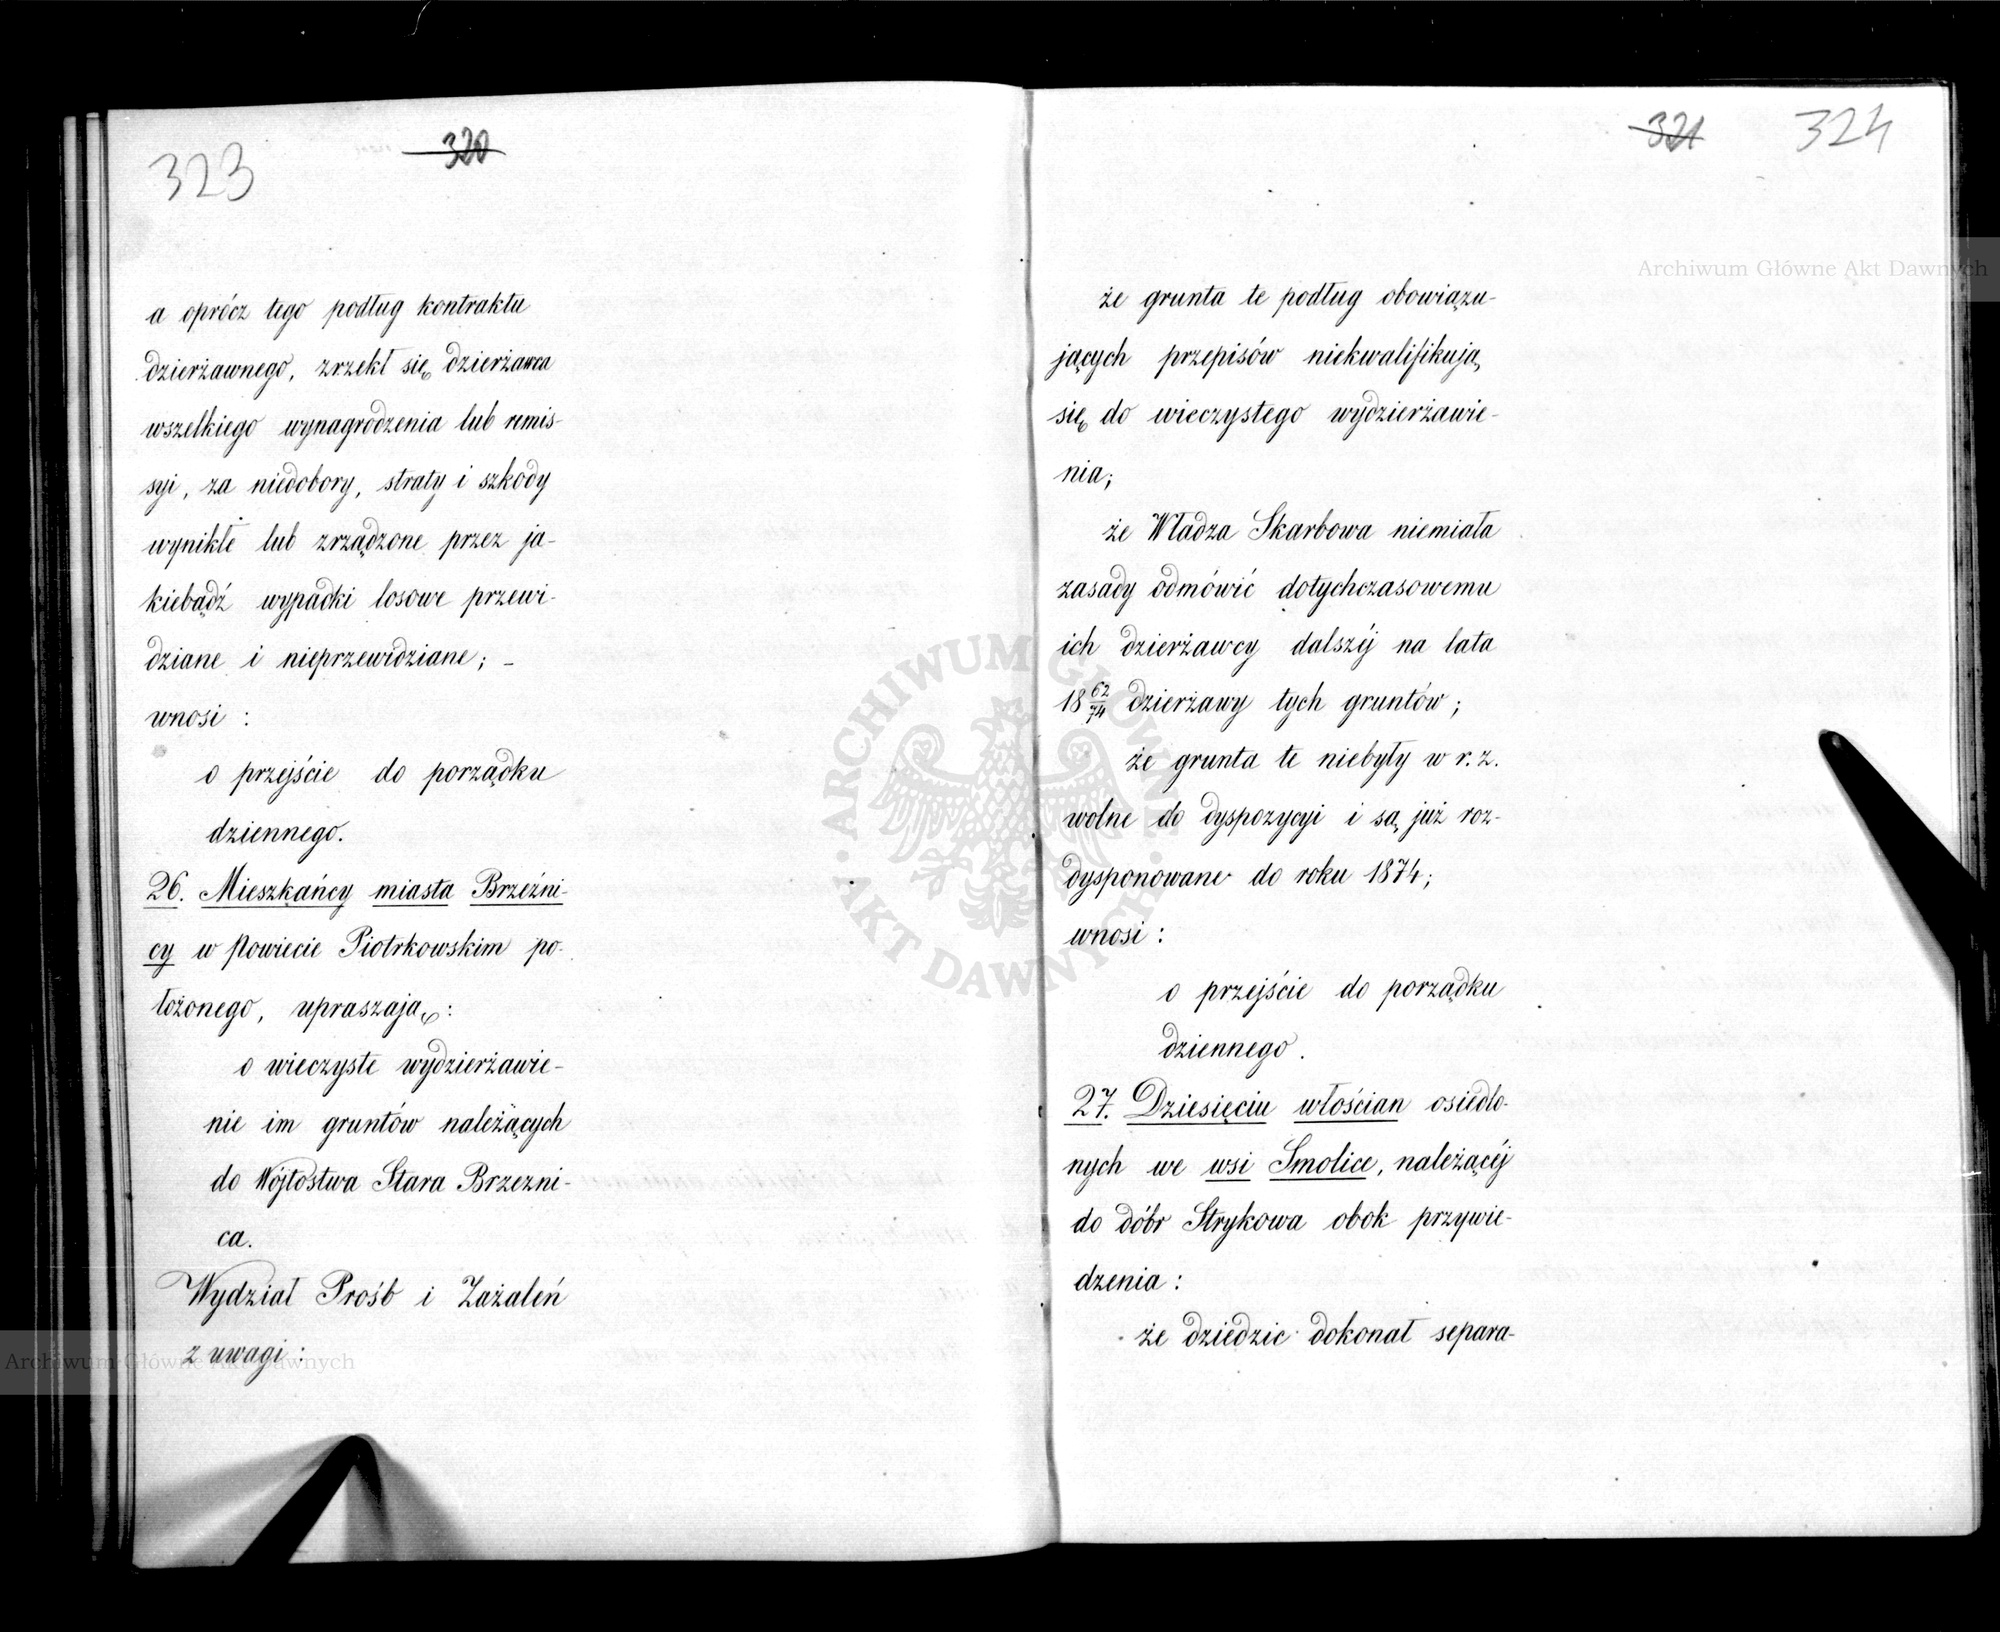 323
320
a oprócz tego podług kontraktu
dzierżawnego, zrzekł się dzierżawca
wszelkiego wynagrodzenia lub remis-
syi, za niedobory, straty i szkody
wynikłe lub zrządzone przez ja-
kiebądź wypadki losowe przewi-
dziane i nieprzewidziane; –
wnosi :
o przejście do porządku
dziennego.
26. Mieszkańcy miasta Brzeźni-
cy w Powiecie Piotrkowskim po-
łożonego, upraszają:
o wieczyste wydzierżawie-
nie im gruntów należących
do Wójtostwa Stara Brzezni-
ca.
Wydział Prośb i Zażaleń
z uwagi :
321
324
że grunta te podług obowiązu-
jących przepisów niekwalifikują
się do wieczystego wydzierżawie-
nia;
że Władza Skarbowa niemiała
zasady odmówić dotychczasowemu
ich dzierżawcy dalszéj na lata
18 62/74 dzierżawy tych gruntów;
że grunta te niebyły w r. z.
wolne do dyspozycyi i są już roz-
dysponowane do roku 1874;
wnosi :
o przejście do porządku
dziennego.
27. Dziesięciu włościan osiedlo-
nych we wsi Smolice, należącéj
do dóbr Strykowa obok przywie-
dzenia :
że dziedzic dokonał separa-
Archiwum Główne Akt Dawnych
ARCHIWUM GŁÓWNE AKT DAWNYCH
Archiwum Główne Akt Dawnych